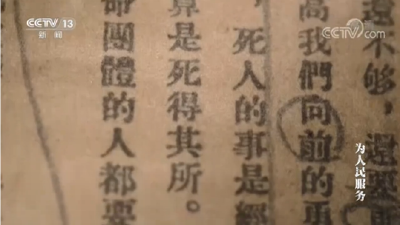 CCTV 13
新闻
CCTV.com
還不够，還要
高我們向前的勇
，死人的事是經
算是死得其所。
命團體的人都要
为人民服务